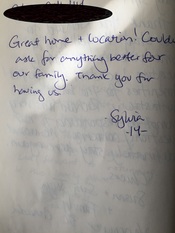 Great home + location! Couldn
ask for anything better for
our family. Thank you for
having us.
-Sylvia
-14-